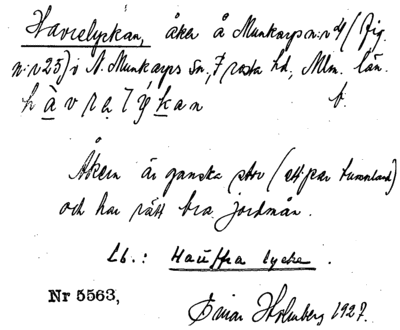 Havrelyckan, åker å Munkarps n:r 4 (Fig.
n:r 25) i N. Munkarps sn., Frosta hd, Mlm. län.
h à v r a l ý k a n b.
Åkern är ganska stor (ett par tunnland)
och har rätt bra jordmån.
Lb.: Hauffra lycke.
Nr 5563, Einar Holmberg 1927.